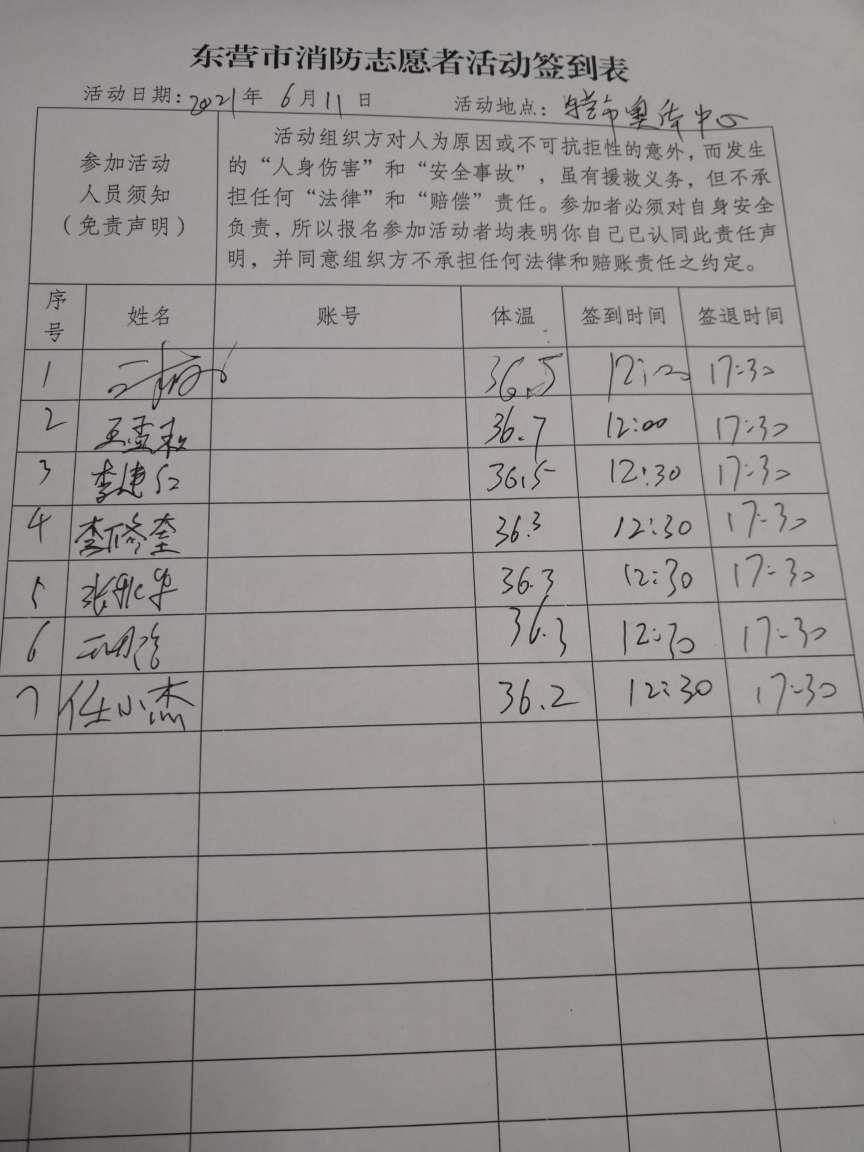 东营市消防志愿者活动签到表
活动日期：2021年 6月11日 活动地点：东营市奥体中心
参加活动
人员须知
（免责声明）
活动组织方对人为原因或不可抗拒性的意外，而发生
的“人身伤害”和“安全事故”，虽有援救义务，但不承
担任何“法律”和“赔偿”责任。参加者必须对自身安全
负责，所以报名参加活动者均表明你自己已认同此责任声
明，并同意组织方不承担任何法律和赔账责任之约定。
序号 姓名 账号 体温 签到时间 签退时间
1 36.5 17:30
2 36.7 12:00 17:30
3 李建红 36.5 12:30 17:30
4 李修奎 36.3 12:30 17:30
5 36.3 12:30 17:30
6 36.3 12:30 17:30
7 任小杰 36.2 12:30 17:30